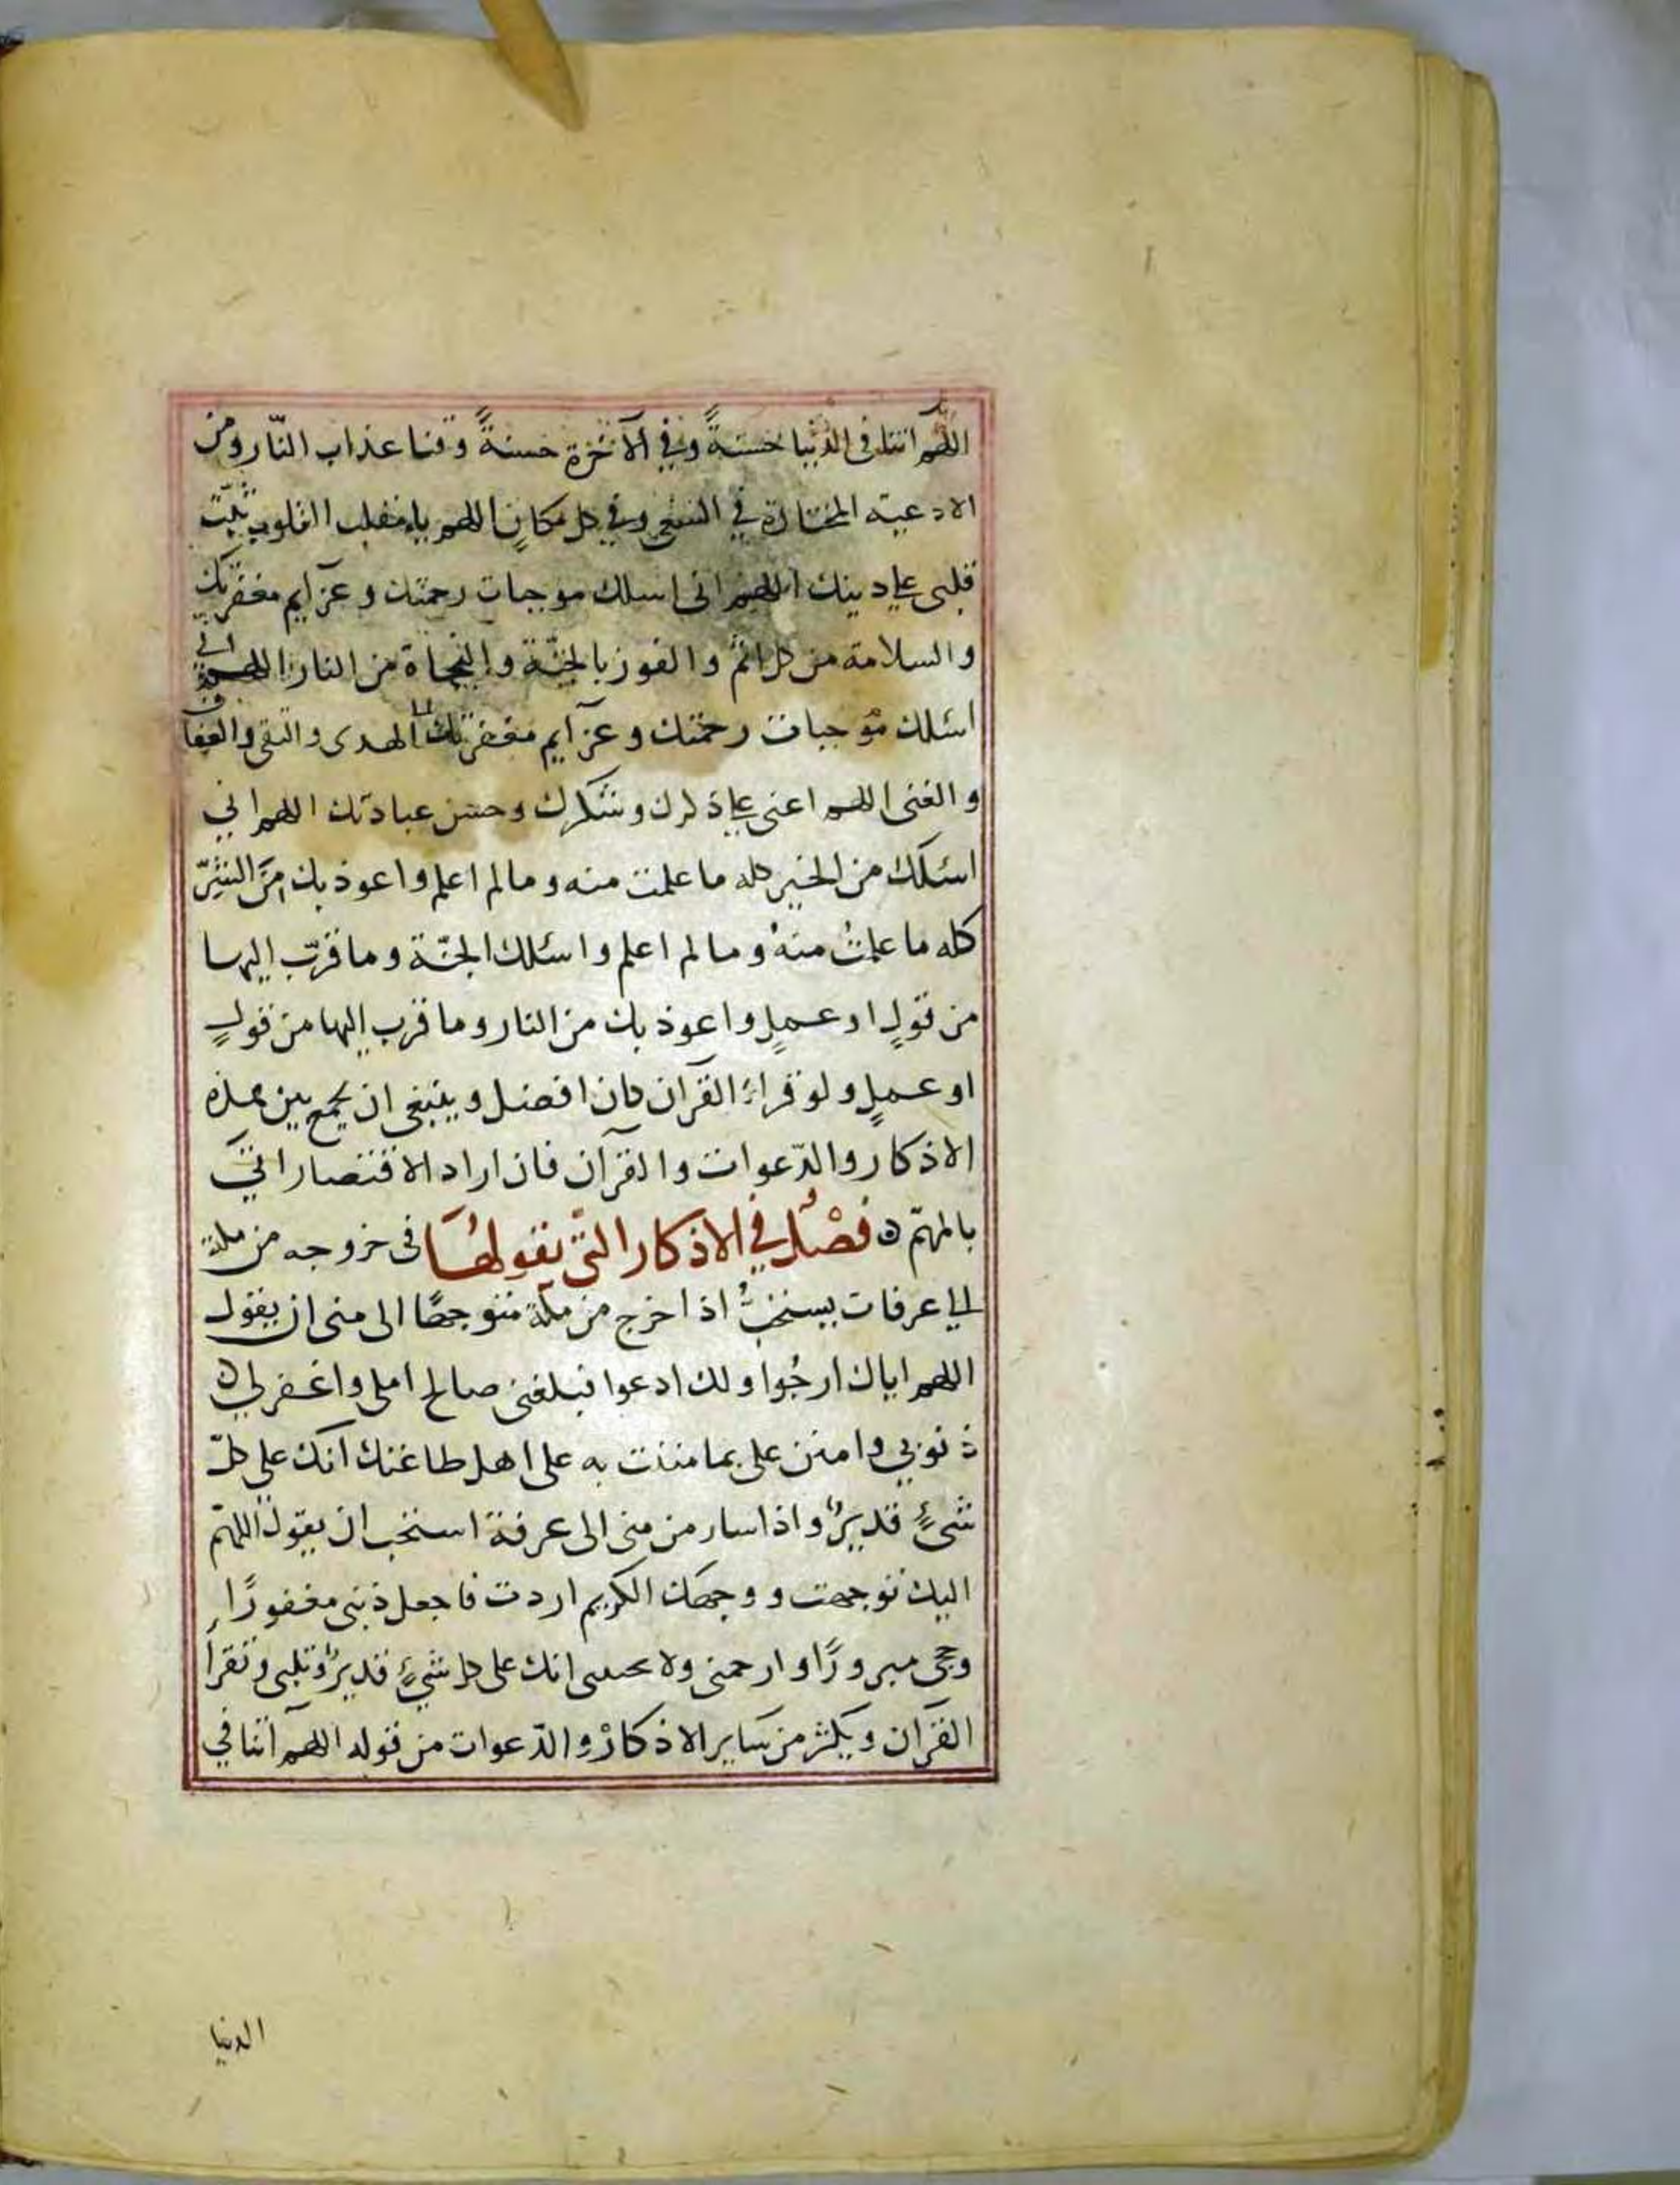 اللهم اتنا في الدنيا حسنةً وفي الآخرة حسنةً وقنا عذاب النّار ومن
الادعية المختارة في السعي وفي كل مكانٍ اللهم يا مقلب القلوب ثبّت
قلبى على دينك اللهم انى اسلك موجبات رحمتك وعزآيم مغفرتك
والسلامة من كل اثم والفوز بالجنّة والنجاة من النار اللهم انى
اسئلك موجبات رحمتك وعزآيم مغفرتك الهدى والتقى والعفاف
والغنى اللهم اعنى على ذكرك وشكرك وحسن عبادتك اللهم اني
اسئلك من الخير كله ما علمت منه وما لم اعلم واعوذ بك من الشرّ
كله ما علمتُ منهُ وما لم اعلم واسئلك الجنّة وما قرّب اليها
من قولٍ او عملٍ واعوذ بك من النار وما قرب اليها من قولٍ
او عملٍ ولو قراء القرآن كان افضل وينبغى ان يجمع بين هذه
الاذكار والدّعوات والقرآن فان اراد الاقتصار اتى
بالمهمّ ه فصْل في الاذكار التي يقولها في خروجه من مكة
الى عرفات يستحبُّ اذا خرج من مكة متوجهًا الى منى ان يقول
اللهم اياك ارجُوا ولك ادعوا فبلغنى صالح املى واغفر لي ه
ذنوبي وامنن على بما مننت به على اهل طاعتك انك على كلّ
شيءٍ قديرٌ واذا سار من منى الى عرفة استحب ان يقول اللهمّ
اليك توجهت ووجهك الكريم اردت فاجعل ذنبى مغفورًا
وحجى مبرورًا وارحمنى ولا تخيبنى انك على كل شيءٍ قديرٌ ويلبى ويقرأ
القرآن ويكثر من ساير الاذكار والدّعوات من قوله اللهم آتنا في
الدنيا